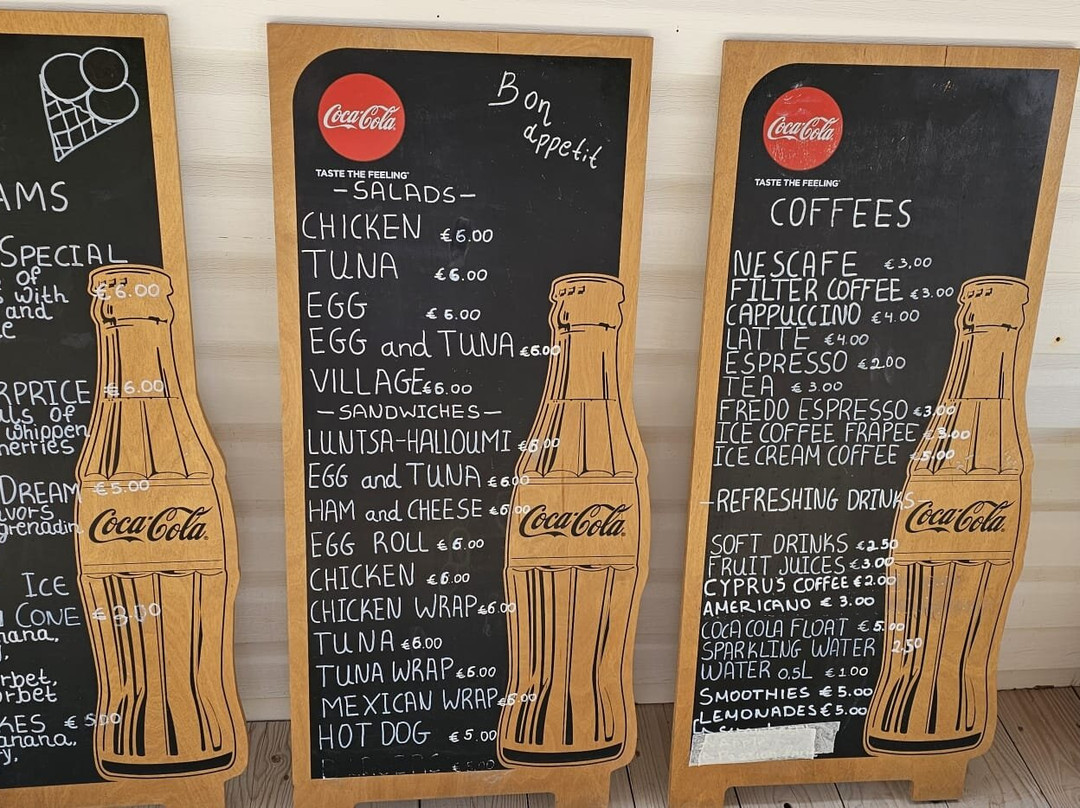 AMS
SPECIAL
of
with € 6.00
and
RPRICE € 6.00
of
whippen
DREAM € 5.00
grenadin
ICE
CONE € 3.00
€ 5.00
Coca-Cola
Coca-Cola
TASTE THE FEELING
Bon
appetit
-SALADS-
CHICKEN € 6.00
TUNA € 6.00
EGG € 6.00
EGG and TUNA €6.00
VILLAGE €6.00
-SANDWICHES-
LUNTSA-HALLOUMI €6.00
EGG and TUNA €6.00
HAM and CHEESE €6.00
EGG ROLL €6.00
CHICKEN €6.00
CHICKEN WRAP €6.00
TUNA €6.00
TUNA WRAP €6.00
MEXICAN WRAP €6.00
HOT DOG € 5.00
Coca-Cola
Coca-Cola
TASTE THE FEELING
COFFEES
NESCAFE €3,00
FILTER COFFEE €3.00
CAPPUCCINO €4.00
LATTE €4.00
ESPRESSO €2.00
TEA € 3.00
FREDO ESPRESSO €3.00
ICE COFFEE FRAPEE €3.00
ICE CREAM COFFEE €5.00
-REFRESHING DRINKS-
SOFT DRINKS €2.50
FRUIT JUICES €3.00
CYPRUS COFFEE €2.00
AMERICANO € 3.00
COCA COLA FLOAT € 5.00
SPARKLING WATER 2.50
WATER 0.5L €1.00
SMOOTHIES € 5.00
LEMONADES € 5.00
Coca-Cola